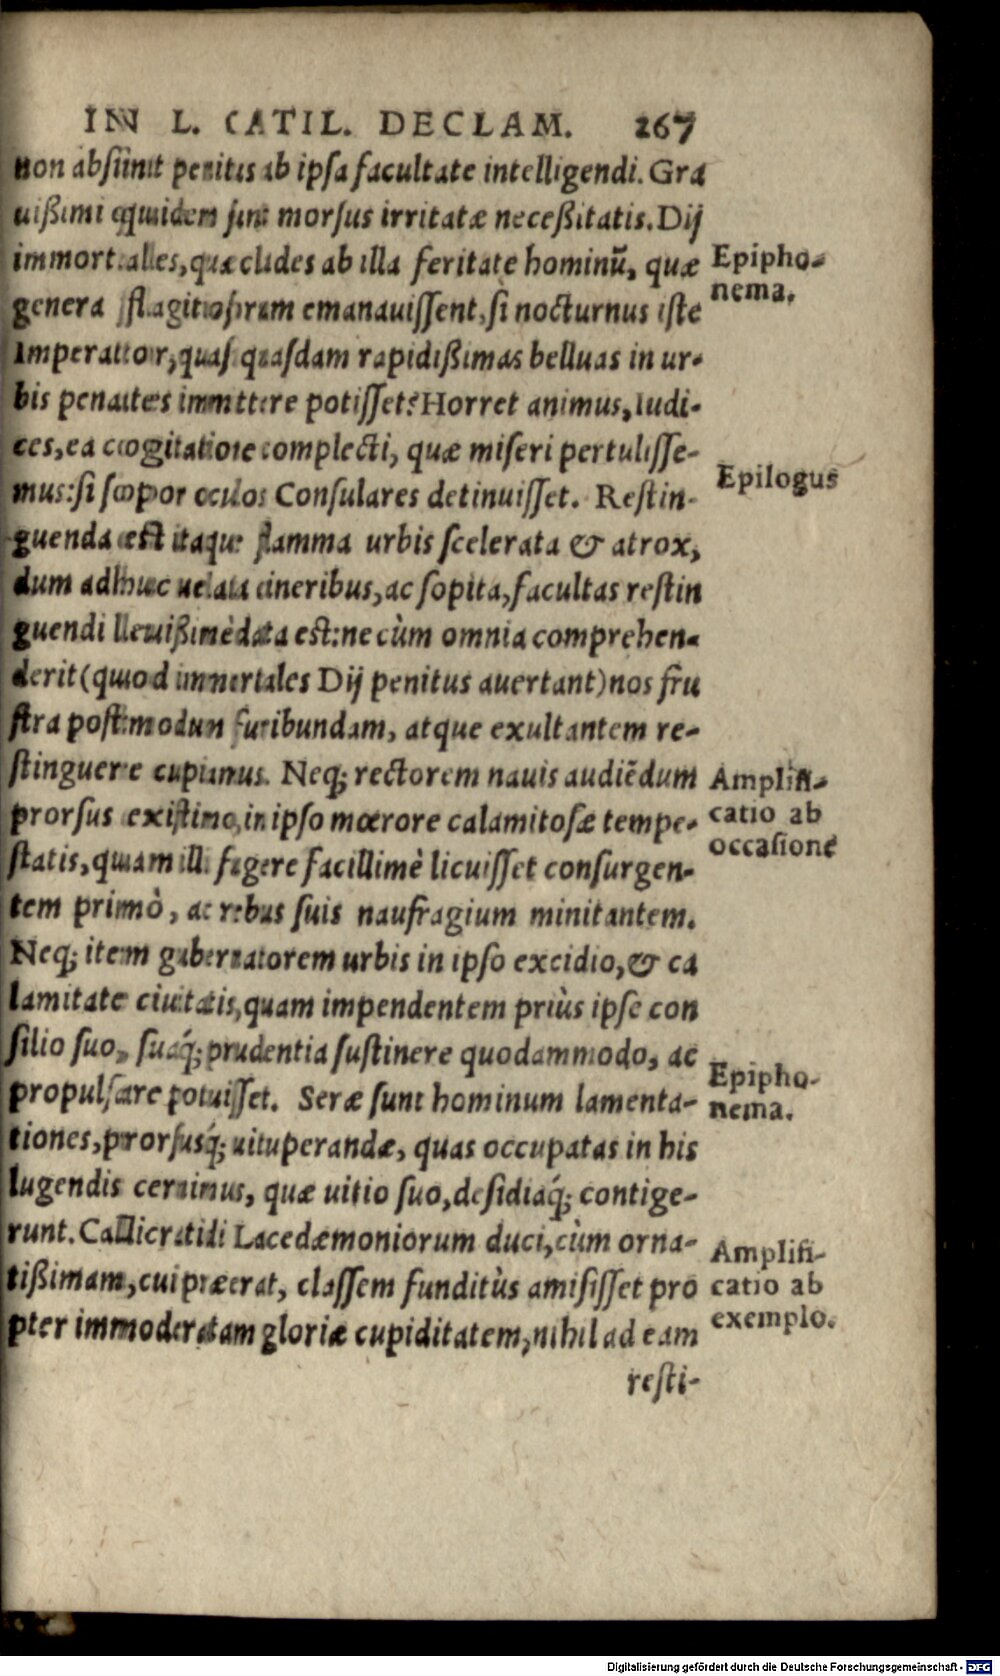 IN L. CATIL. DECLAM. 267
non absunt penitus ab ipsa facultate intelligendi. Gra
uißimi equidem sunt morsus irritatæ neceßitatis. Dij
immortales, quæ clades ab illa feritate hominū, quæ
Epipho-
nema.
genera flagitiorum emanauissent, si nocturnus iste
Imperator, quas quasdam rapidißimas belluas in ur-
bis penates immittere potisset? Horret animus, Iudi-
ces, ea cogitatione complecti, quæ miseri pertulisse-
Epilogus
mus: si sopor oculos Consulares detinuisset. Restin-
guenda est itaque flamma urbis scelerata & atrox,
dum adhuc uelata cineribus, ac sopita, facultas restin
guendi leuißimè data est: ne cùm omnia comprehen-
derit (quod immortales Dij penitus auertant) nos fru
stra postmodum furibundam, atque exultantem re-
stinguere cupiamus. Neq; rectorem nauis audiēdum
Amplifi-
catio ab
occasione
prorsus existimo, in ipso mœrore calamitosæ tempe-
statis, quam illi fugere facillimè licuisset consurgen-
tem primò, ac rebus suis naufragium minitantem.
Neq; item gubernatorem urbis in ipso excidio, & ca
lamitate ciuitatis, quam impendentem priùs ipse con
silio suo, suaq́; prudentia sustinere quodammodo, ac
Epipho-
nema.
propulsare potuisset. Seræ sunt hominum lamenta-
tiones, prorsusq́; uituperandæ, quas occupatas in his
lugendis cernimus, quæ uitio suo, desidiaq́; contige-
runt. Callicratidi Lacedæmoniorum duci, cùm orna-
Amplifi-
catio ab
exemplo.
tißimam, cui præerat, classem funditùs amisisset pro
pter immoderatam gloriæ cupiditatem, nihil ad eam
resti-
Digitalisierung gefördert durch die Deutsche Forschungsgemeinschaft - DFG